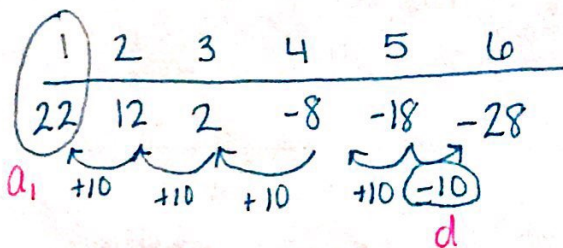 1 2 3 4 5 6
22 12 2 -8 -18 -28
a₁ +10 +10 +10 +10 -10
d